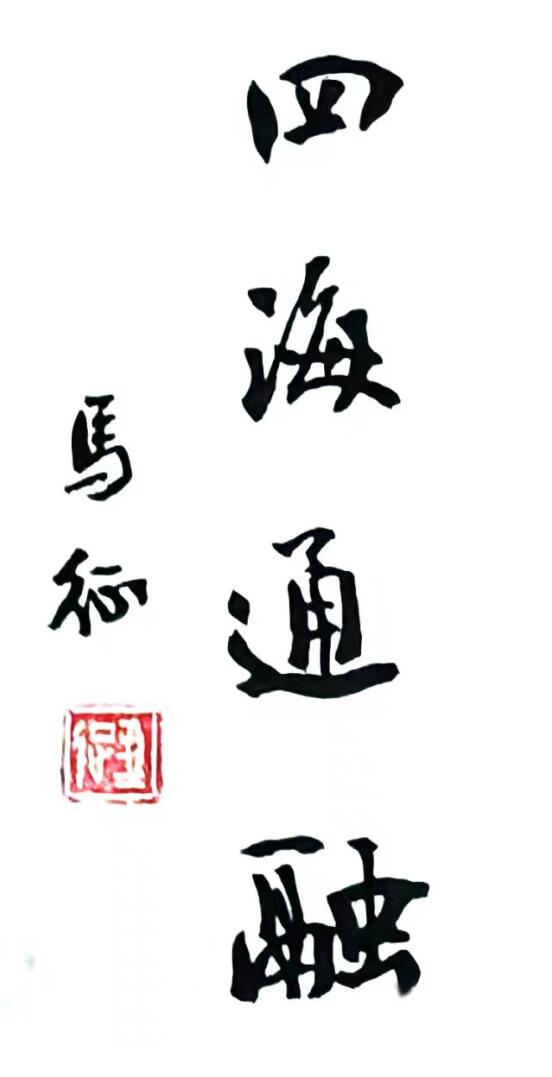 四海通融
馬征